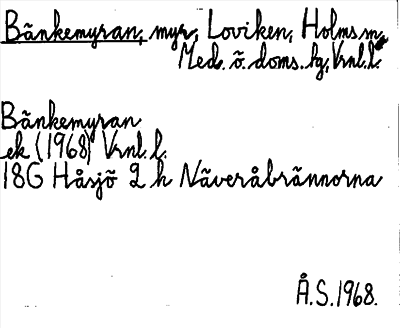 Bänkemyran, myr, Loviken, Holms sn,
Med. ö. doms. hg, Vrnl. l.
Bänkemyran
ek (1968) Vrnl. l.
18G Håsjö 2 h Näveråbrännorna
Å.S. 1968.